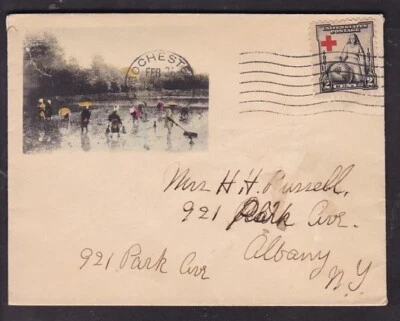 ROCHESTE
FEB 2
UNITED STATES
POSTAGE
2 CENTS 2
Mrs H. H. Russell,
921 Park Ave.
Albany
N.Y.
921 Park Ave